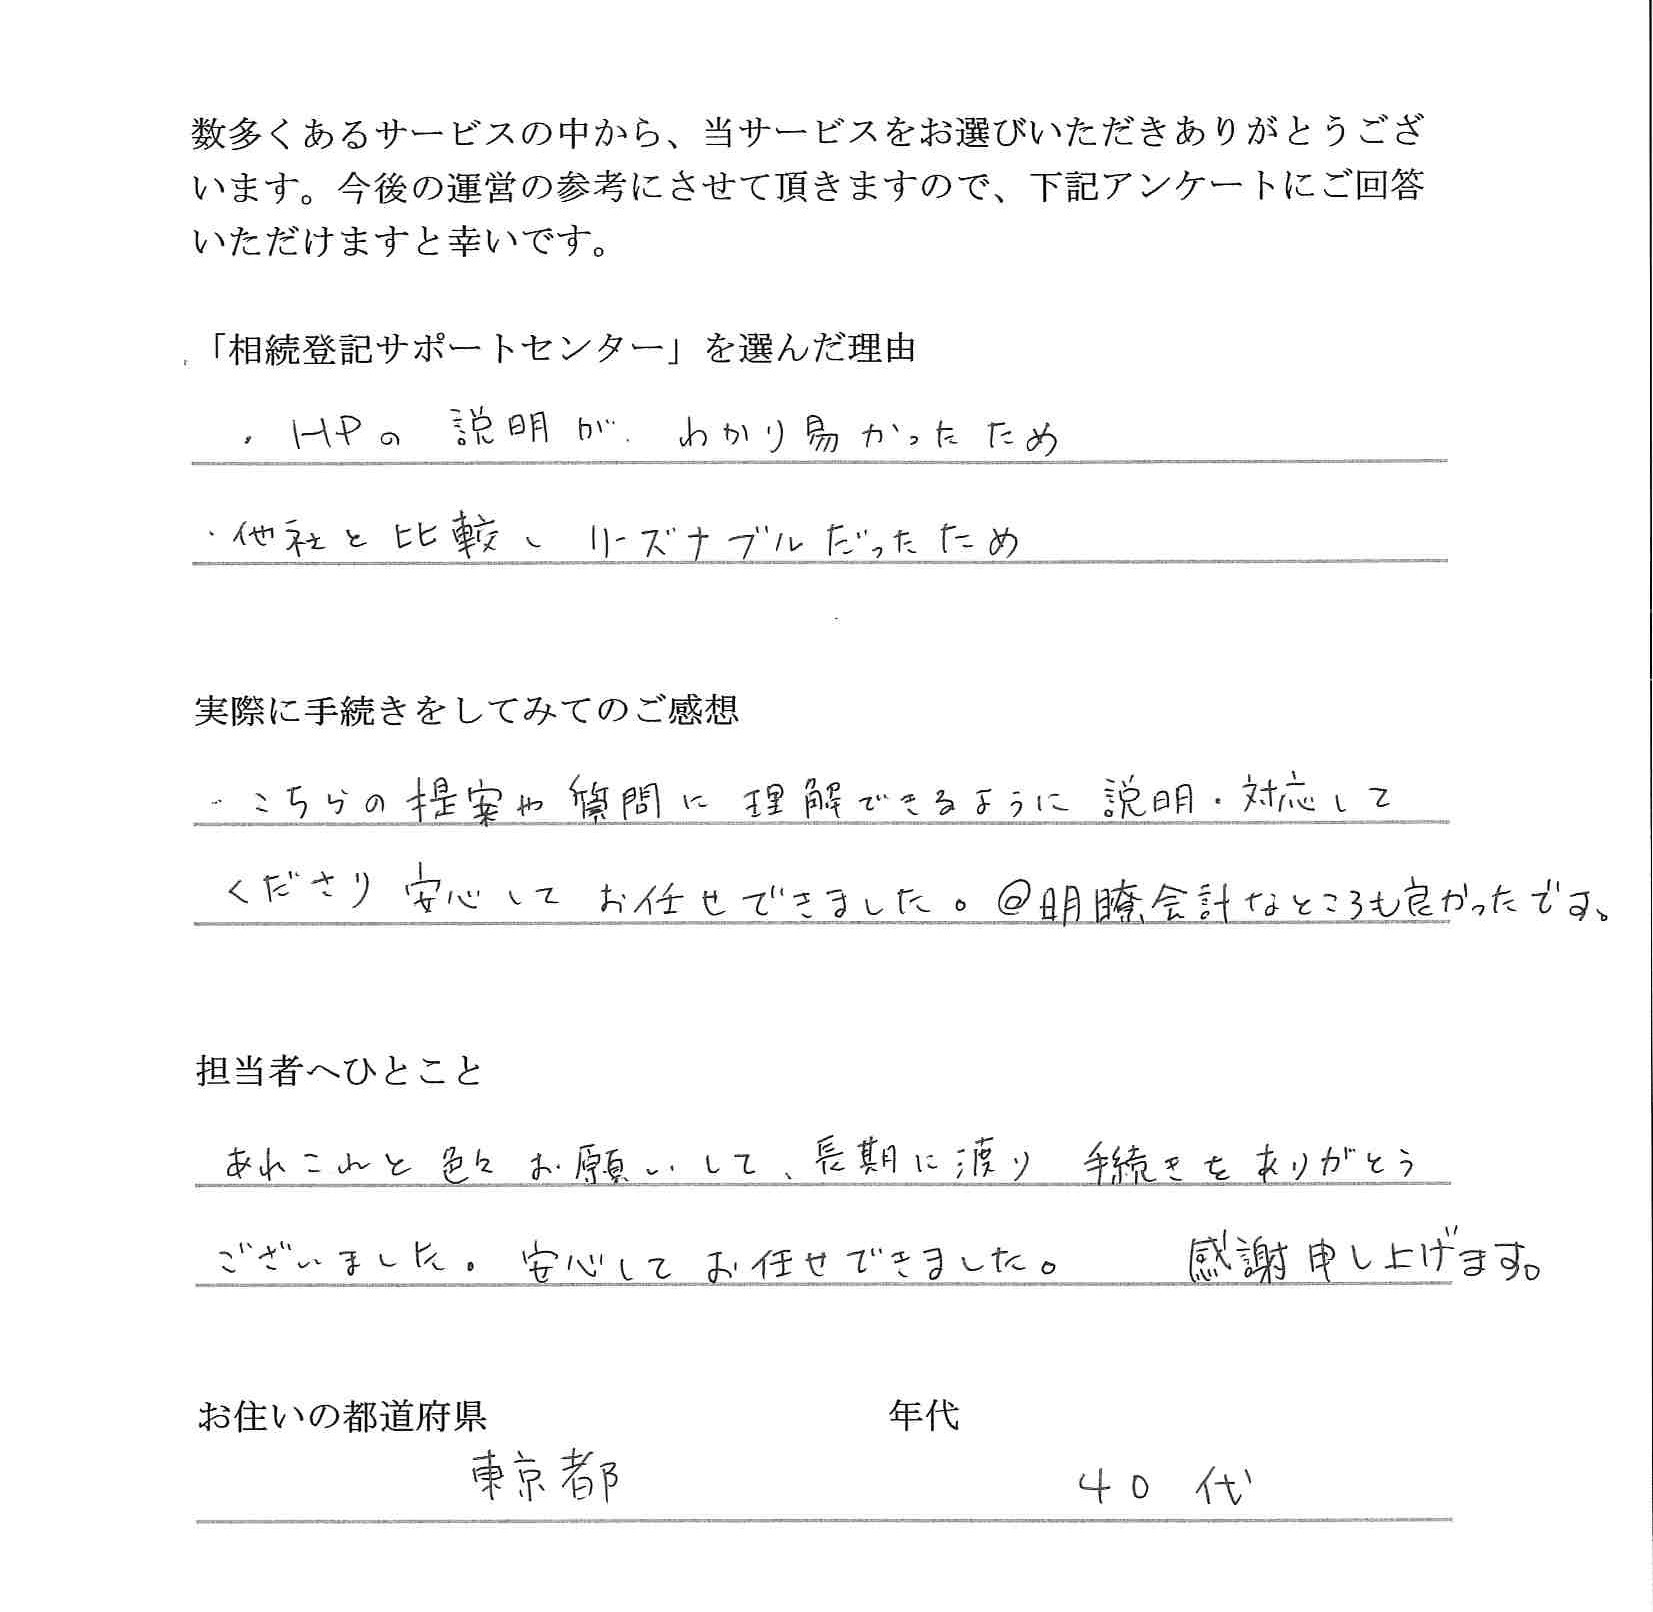 数多くあるサービスの中から、当サービスをお選びいただきありがとうござ
います。今後の運営の参考にさせて頂きますので、下記アンケートにご回答
いただけますと幸いです。
「相続登記サポートセンター」を選んだ理由
・HPの説明が わかり易かったため
・他社と比較し リーズナブルだったため
実際に手続きをしてみてのご感想
・こちらの提案や質問に理解できるように説明・対応して
くださり安心してお任せできました。@明瞭会計なところも良かったです。
担当者へひとこと
あれこれと色々お願いして、長期に渡り 手続きをありがとう
ございました。安心してお任せできました。 感謝申し上げます。
お住いの都道府県 年代
東京都 40代